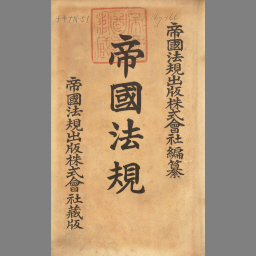 帝國法規出版株式會社編纂
帝國法規
帝國法規出版株式會社藏版